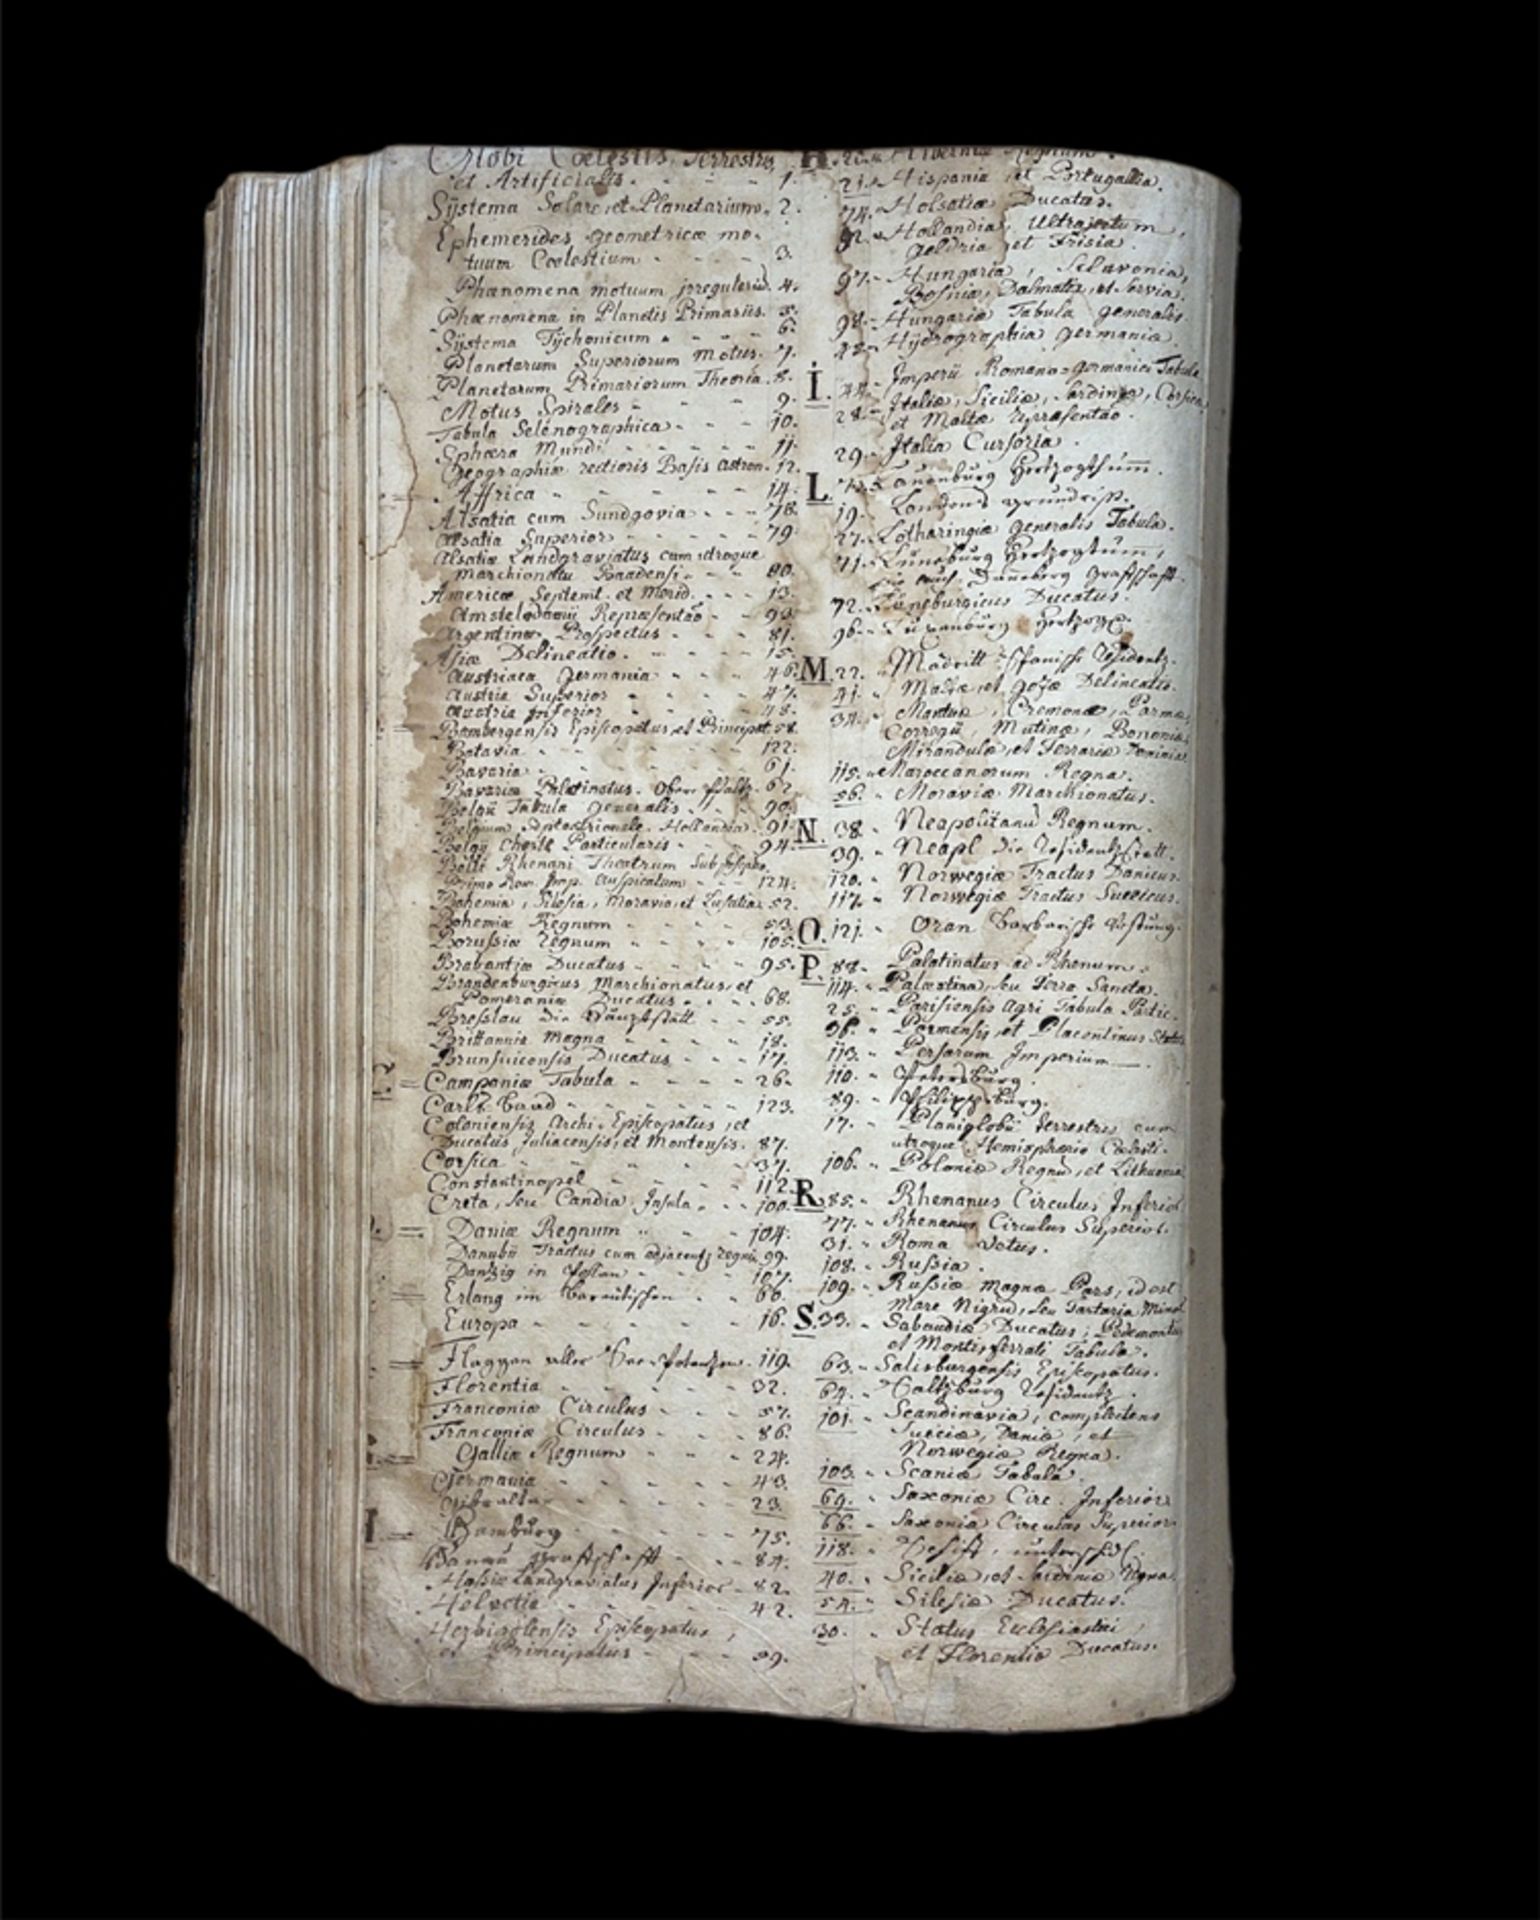 Globi Coelestis, Terrestris,
et Artificialis. 1.
Systema Solare et Planetarium. 2.
Ephemerides geometricæ mo-
tuum Coelestium 3.
Phænomena motuum irregularium 4.
Phænomena in Planetis Primariis. 5.
Systema Tÿchonicum 6.
Planetarum Superiorum Motus. 7.
Planetarum Primariorum Theoria. 8.
Motus Spirales 9.
Tabula Selenographica 10.
Sphæra Mundi 11.
Geographiæ rectioris Basis astron. 12.
Affrica 14.
Alsatia cum Sundgovia 78.
Alsatia Superior 79
Alsatiæ Landgraviatus cum utroque
Marchionatu Baadensi 80.
Americæ Septent. et Merid. 13.
Amstelodami Repræsentao 93.
Argentinæ Prospectus 81.
Asiæ Delineatio. 15.
Austriaca Germania 46.
Austria Superior 47.
Austria Inferior 48.
Bambergensis Episcopatus, et Principat. 58.
Batavia 122.
Bavaria 61.
Bavariæ Palatinatus. Ober Pfaltz. 62
Belgii Tabula generalis. 90.
Belgium Septentrionale. Hollandia. 91.
Belgÿ Charte Particularis 94.
Belli Rhenani Theatrum sub Josepho
Primo Rom. Imp. Auspicatum 124.
Bohemia, Silesia, Moravia, et Lusatia 52.
Bohemiæ Regnum 53.
Borussiæ Regnum 105.
Brabantiæ Ducatus 95.
Brandenburgicus Marchionatus, et
Pomeraniæ Ducatus 68.
Breslau die Hauptstatt 55.
Brittannia Magna 18.
Brunsuicensis Ducatus 17.
C. Campaniæ Tabula 26.
Carls Baad 123.
Coloniensis Archi-Episcopatus, et
Ducatus Juliacensis, et Montensis. 87.
Corsica 37.
Constantinopel 112.
Creta, seu Candia Insula 100.
D. Daniæ Regnum 104.
Danubii Tractus cum adjacents regnis 99.
Dantzig in Pollan 107.
Erlang im Bareutischen 60.
Europa 16.
Flaggen aller See-Potentzen. 119.
Florentia 32.
Franconiæ Circulus 57.
Franconiæ Circulus 86.
G. Galliæ Regnum 24.
Germania 43.
Gibraltar 23.
H Hamburg 75.
Hanau Graffschafft 84.
Hassiæ Landgraviatus Inferior 82.
Helvetia 42.
Herbipolensis Episcopatus,
et Principatus 59.
H Hiberniæ Regnum.
21. Hispania et Portugallia.
74. Holsatiæ Ducatus.
92. Hollandia, Ultrajectum,
Geldria et Frisia.
97. Hungaria, Sclavonia,
Bosnia, Dalmatia, et Servia.
98. Hungariæ Tabula generalis.
Hÿdrographia Germaniæ.
I. 44. Imperii Romano-Germanici Tabula
28. Italiæ, Siciliæ, Sardiniæ, Corsicæ
et Maltæ repræsentao.
29. Italia Cursoria.
L. Lauenburg Hertzogthum.
19. Londens grundriss.
27. Lotharingiæ generalis Tabula.
71. Lüneburg Hertzogtum,
wie auch Danneberg Graffschafft.
72. Lüneburgicus Ducatus.
96. Luxemburg Hertzog.
M. 22. Madritt Spanische Residentz.
41. Maltæ, et Gozæ Delineatio.
34. Mantuæ, Cremonæ, Parmæ,
Corregii, Mutinæ, Bononiæ,
Mirandulæ, et Ferrariæ Dominia.
115. Maroccanorum Regna.
56. Moraviæ Marchionatus.
N. 38. Neapolitanu Regnum.
39. Neapl die Residentzstatt.
120. Norwegiæ Tractus Danicus.
117. Norwegiæ Tractus Suecicus.
O. 121. Oran Barbarische Vestung.
P. 88. Palatinatus ad Rhenum.
114. Palæstina, seu Terra Sancta.
25. Parisiensis Agri Tabula Partic.
36. Parmensis, et Placentinus Status
113. Persarum Imperium.
110. Petersburg.
89. Philippsburg.
17. Planiglobii terrestris cum
utroque Hemisphærio Coelesti.
106. Poloniæ Regnu, et Lithuania
R. 85. Rhenanus Circulus Inferior
77. Rhenanus Circulus Superior.
31. Roma Vetus.
108. Russia.
109. Russiæ Magnæ Pars, id est
Mare Nigru, seu Tartaria Minor
S. 33. Sabaudiæ Ducatus, Pedemontii,
et Montisferrati Tabula.
63. Salisburgensis Episcopatus.
64. Saltzburg Residentz.
101. Scandinavia, complectens
Sueciæ, Daniæ, et
Norwegiæ Regna.
103. Scaniæ Tabula.
69. Saxoniæ Circ. Inferior
66. Saxonia Circulus Superior.
118. Schiff,
40. Siciliæ, et Sardiniæ Regna.
54. Silesiæ Ducatus.
30. Status Ecclesiastici,
et Florentiæ Ducatus.